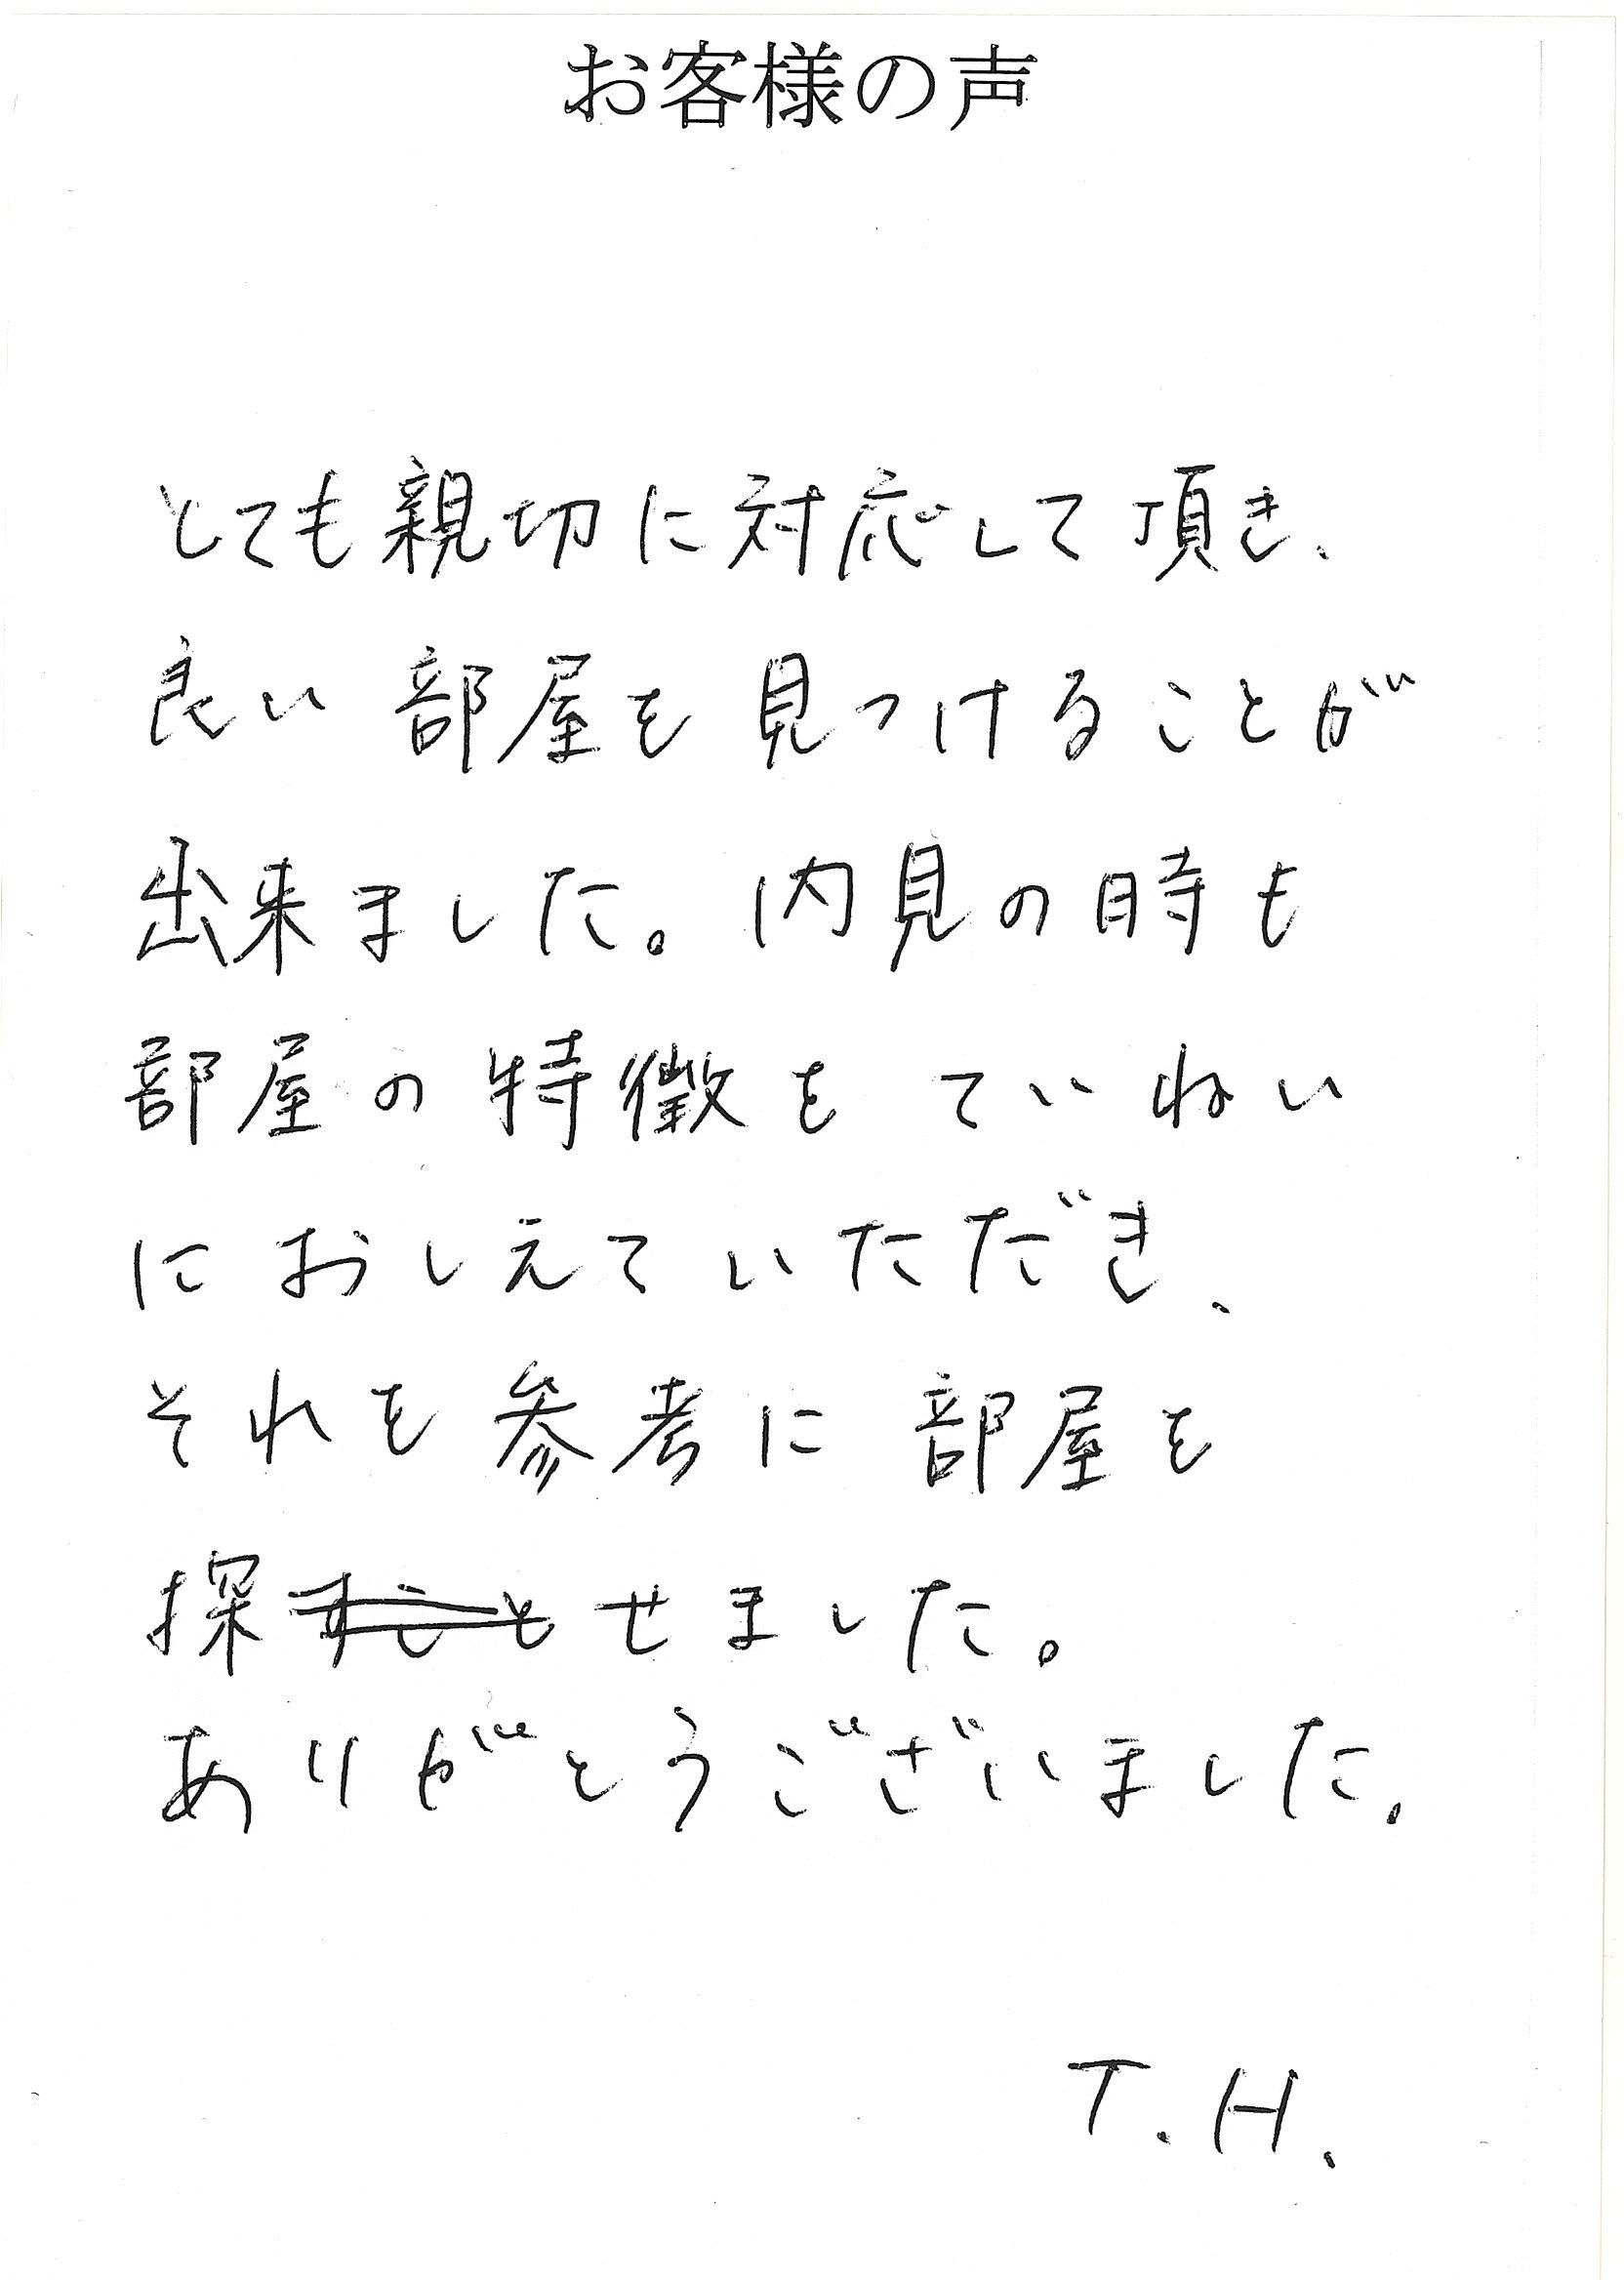 お客様の声
とても親切に対応して頂き、
良い部屋を見つけることが
出来ました。内見の時も
部屋の特徴をていねい
におしえていただき、
それを参考に部屋を
探せました。
ありがとうございました。
T.H.